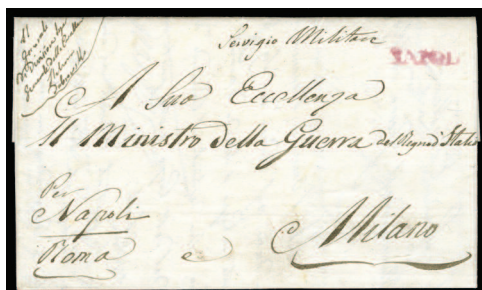 Il
Generale
Servizio Militare
NAPOL
A Sua Eccellenza
Il Ministro della Guerra del Regno d'Italia
Per
Napoli
Roma e Milano